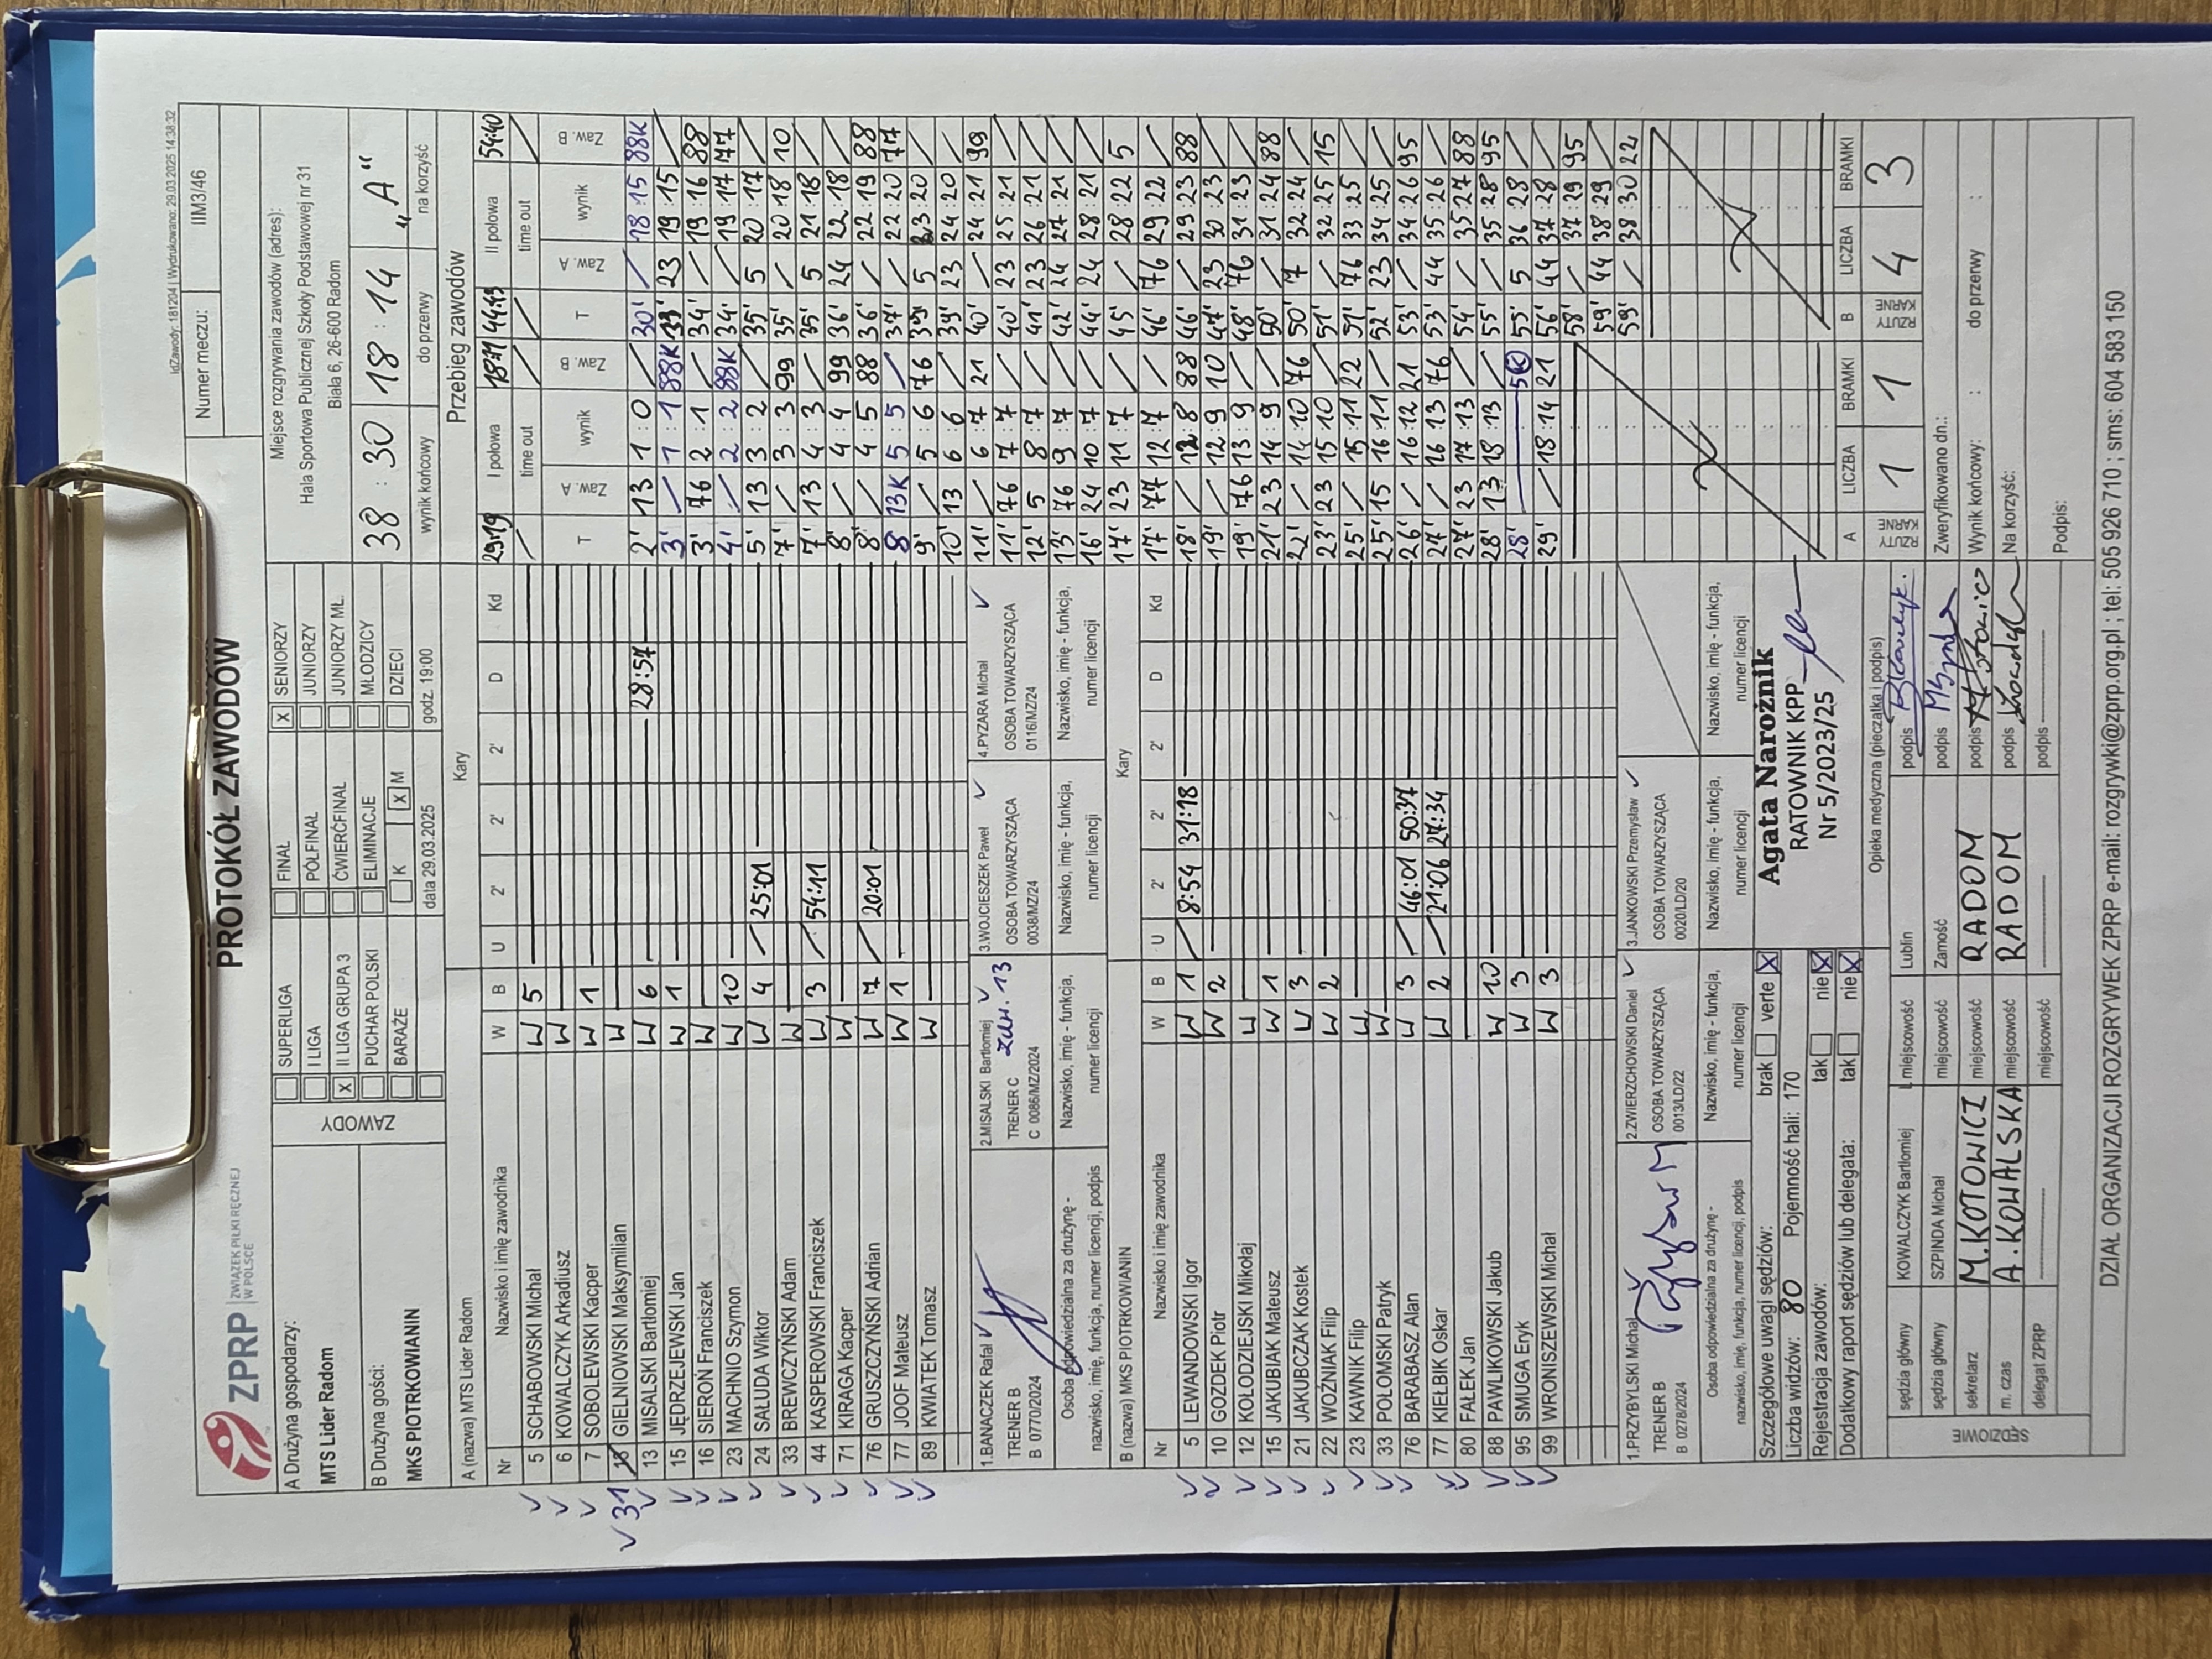 ZPRP
ZWIĄZEK PIŁKI RĘCZNEJ
W POLSCE
PROTOKÓŁ ZAWODÓW
IdZawody: 181204 | Wydrukowano: 29.03.2025 14:38:32
Numer meczu:
IIM3/46
A Drużyna gospodarzy:
MTS Lider Radom
B Drużyna gości:
MKS PIOTRKOWIANIN
ZAWODY
SUPERLIGA
I LIGA
X II LIGA GRUPA 3
PUCHAR POLSKI
BARAŻE
FINAŁ
PÓŁFINAŁ
ĆWIERĆFINAŁ
ELIMINACJE
K X M
X SENIORZY
JUNIORZY
JUNIORZY MŁ.
MŁODZICY
DZIECI
data 29.03.2025
godz. 19:00
Miejsce rozgrywania zawodów (adres):
Hala Sportowa Publicznej Szkoły Podstawowej nr 31
Biała 6, 26-600 Radom
38 : 30
18 : 14
„A“
wynik końcowy
do przerwy
na korzyść
A (nazwa) MTS Lider Radom
Kary
Nr Nazwisko i imię zawodnika W B U 2' 2' 2' D Kd
5 SCHABOWSKI Michał W 5
6 KOWALCZYK Arkadiusz W
7 SOBOLEWSKI Kacper W 1
31 GIELNIOWSKI Maksymilian W
13 MISALSKI Bartłomiej W 6 28:57
15 JĘDRZEJEWSKI Jan W 1
16 SIEROŃ Franciszek W
23 MACHNIO Szymon W 10
24 SAŁUDA Wiktor W 4 25:01
33 BREWCZYŃSKI Adam W
44 KASPEROWSKI Franciszek W 3 54:11
71 KIRAGA Kacper W
76 GRUSZCZYŃSKI Adrian W 7 20:01
77 JOOF Mateusz W 1
89 KWIATEK Tomasz W
1.BANACZEK Rafał
TRENER B
B 0770/2024
2.MISALSKI Bartłomiej
TRENER C
C 0086/MZ/2024
3.WOJCIESZEK Paweł
OSOBA TOWARZYSZĄCA
0038/MZ/24
4.PYZARA Michał
OSOBA TOWARZYSZĄCA
0116/MZ/24
Osoba odpowiedzialna za drużynę -
nazwisko, imię, funkcja, numer licencji, podpis
Nazwisko, imię - funkcja,
numer licencji
Nazwisko, imię - funkcja,
numer licencji
Nazwisko, imię - funkcja,
numer licencji
B (nazwa) MKS PIOTRKOWIANIN
Kary
Nr Nazwisko i imię zawodnika W B U 2' 2' 2' D Kd
5 LEWANDOWSKI Igor W 1 8:54 31:18
10 GOZDEK Piotr W 2
12 KOŁODZIEJSKI Mikołaj W
15 JAKUBIAK Mateusz W 1
21 JAKUBCZAK Kostek W 3
22 WOŹNIAK Filip W 2
23 KAWNIK Filip W
33 POŁOMSKI Patryk W
76 BARABASZ Alan W 3 46:01 50:37
77 KIEŁBIK Oskar W 2 21:06 27:34
80 FAŁEK Jan
88 PAWLIKOWSKI Jakub W 10
95 SMUGA Eryk W 3
99 WRONISZEWSKI Michał W 3
1.PRZYBYLSKI Michał
TRENER B
B 0278/2024
2.ZWIERZCHOWSKI Daniel
OSOBA TOWARZYSZĄCA
0013/LD/22
3.JANKOWSKI Przemysław
OSOBA TOWARZYSZĄCA
0020/LD/20
Osoba odpowiedzialna za drużynę -
nazwisko, imię, funkcja, numer licencji, podpis
Nazwisko, imię - funkcja,
numer licencji
Nazwisko, imię - funkcja,
numer licencji
Nazwisko, imię - funkcja,
numer licencji
Szczegółowe uwagi sędziów: brak verte X
Liczba widzów: 80 Pojemność hali: 170
Rejestracja zawodów: tak nie X
Dodatkowy raport sędziów lub delegata: tak nie X
Agata Narożnik
RATOWNIK KPP
Nr 5/2023/25
Opieka medyczna (pieczątka i podpis)
SĘDZIOWIE
sędzia główny KOWALCZYK Bartłomiej miejscowość Lublin podpis
sędzia główny SZPINDA Michał miejscowość Zamość podpis
sekretarz M.KOTOWICZ miejscowość RADOM podpis
m. czas A.KOWALSKA miejscowość RADOM podpis
delegat ZPRP miejscowość podpis
Przebieg zawodów
29:19 I połowa 18:71 44:43 II połowa 54:40
time out
time out
T Zaw. A wynik Zaw. B T Zaw. A wynik Zaw. B
2' 13 1 : 0 / 30' / 18 : 15 88K
3' / 1 : 1 88K 33' 23 19 : 15 /
3' 76 2 : 1 / 34' / 19 : 16 88
4' / 2 : 2 88K 34' / 19 : 17 77
5' 13 3 : 2 / 35' 5 20 : 17 /
7' / 3 : 3 99 35' / 20 : 18 10
7' 13 4 : 3 / 35' 5 21 : 18 /
8' / 4 : 4 99 36' 24 22 : 18 /
8' / 4 : 5 88 36' / 22 : 19 88
8 13K 5 : 5 / 37' / 22 : 20 77
9' / 5 : 6 76 39' 5 23 : 20 /
10' 13 6 : 6 / 39' 23 24 : 20 /
11' / 6 : 7 21 40' / 24 : 21 99
11' 76 7 : 7 / 40' 23 25 : 21 /
12' 5 8 : 7 / 41' 23 26 : 21 /
13' 76 9 : 7 / 42' 24 27 : 21 /
16' 24 10 : 7 / 44' 24 28 : 21 /
17' 23 11 : 7 / 45' / 28 : 22 5
17' 77 12 : 7 / 46' 76 29 : 22 /
18' / 12 : 8 88 46' / 29 : 23 88
19' / 12 : 9 10 47' 23 30 : 23 /
19' 76 13 : 9 / 48' 76 31 : 23 /
21' 23 14 : 9 / 50' / 31 : 24 88
22' / 14 : 10 76 50' 7 32 : 24 /
23' 23 15 : 10 / 51' / 32 : 25 15
25' / 15 : 11 22 51' 76 33 : 25 /
25' 15 16 : 11 / 52' 23 34 : 25 /
26' / 16 : 12 21 53' / 34 : 26 95
27' / 16 : 13 76 53' 44 35 : 26 /
27' 23 17 : 13 / 54' / 35 : 27 88
28' 13 18 : 13 / 55' / 35 : 28 95
28' 5K 55' 5 36 : 28 /
29' / 18 : 14 21 56' 44 37 : 28 /
58' / 37 : 29 95
59' 44 38 : 29 /
59' / 38 : 30 22
A LICZBA BRAMKI B LICZBA BRAMKI
RZUTY KARNE 1 1 RZUTY KARNE 4 3
Zweryfikowano dn.:
Wynik końcowy: : do przerwy :
Na korzyść:
Podpis:
DZIAŁ ORGANIZACJI ROZGRYWEK ZPRP e-mail: rozgrywki@zprp.org.pl ; tel: 505 926 710 ; sms: 604 583 150